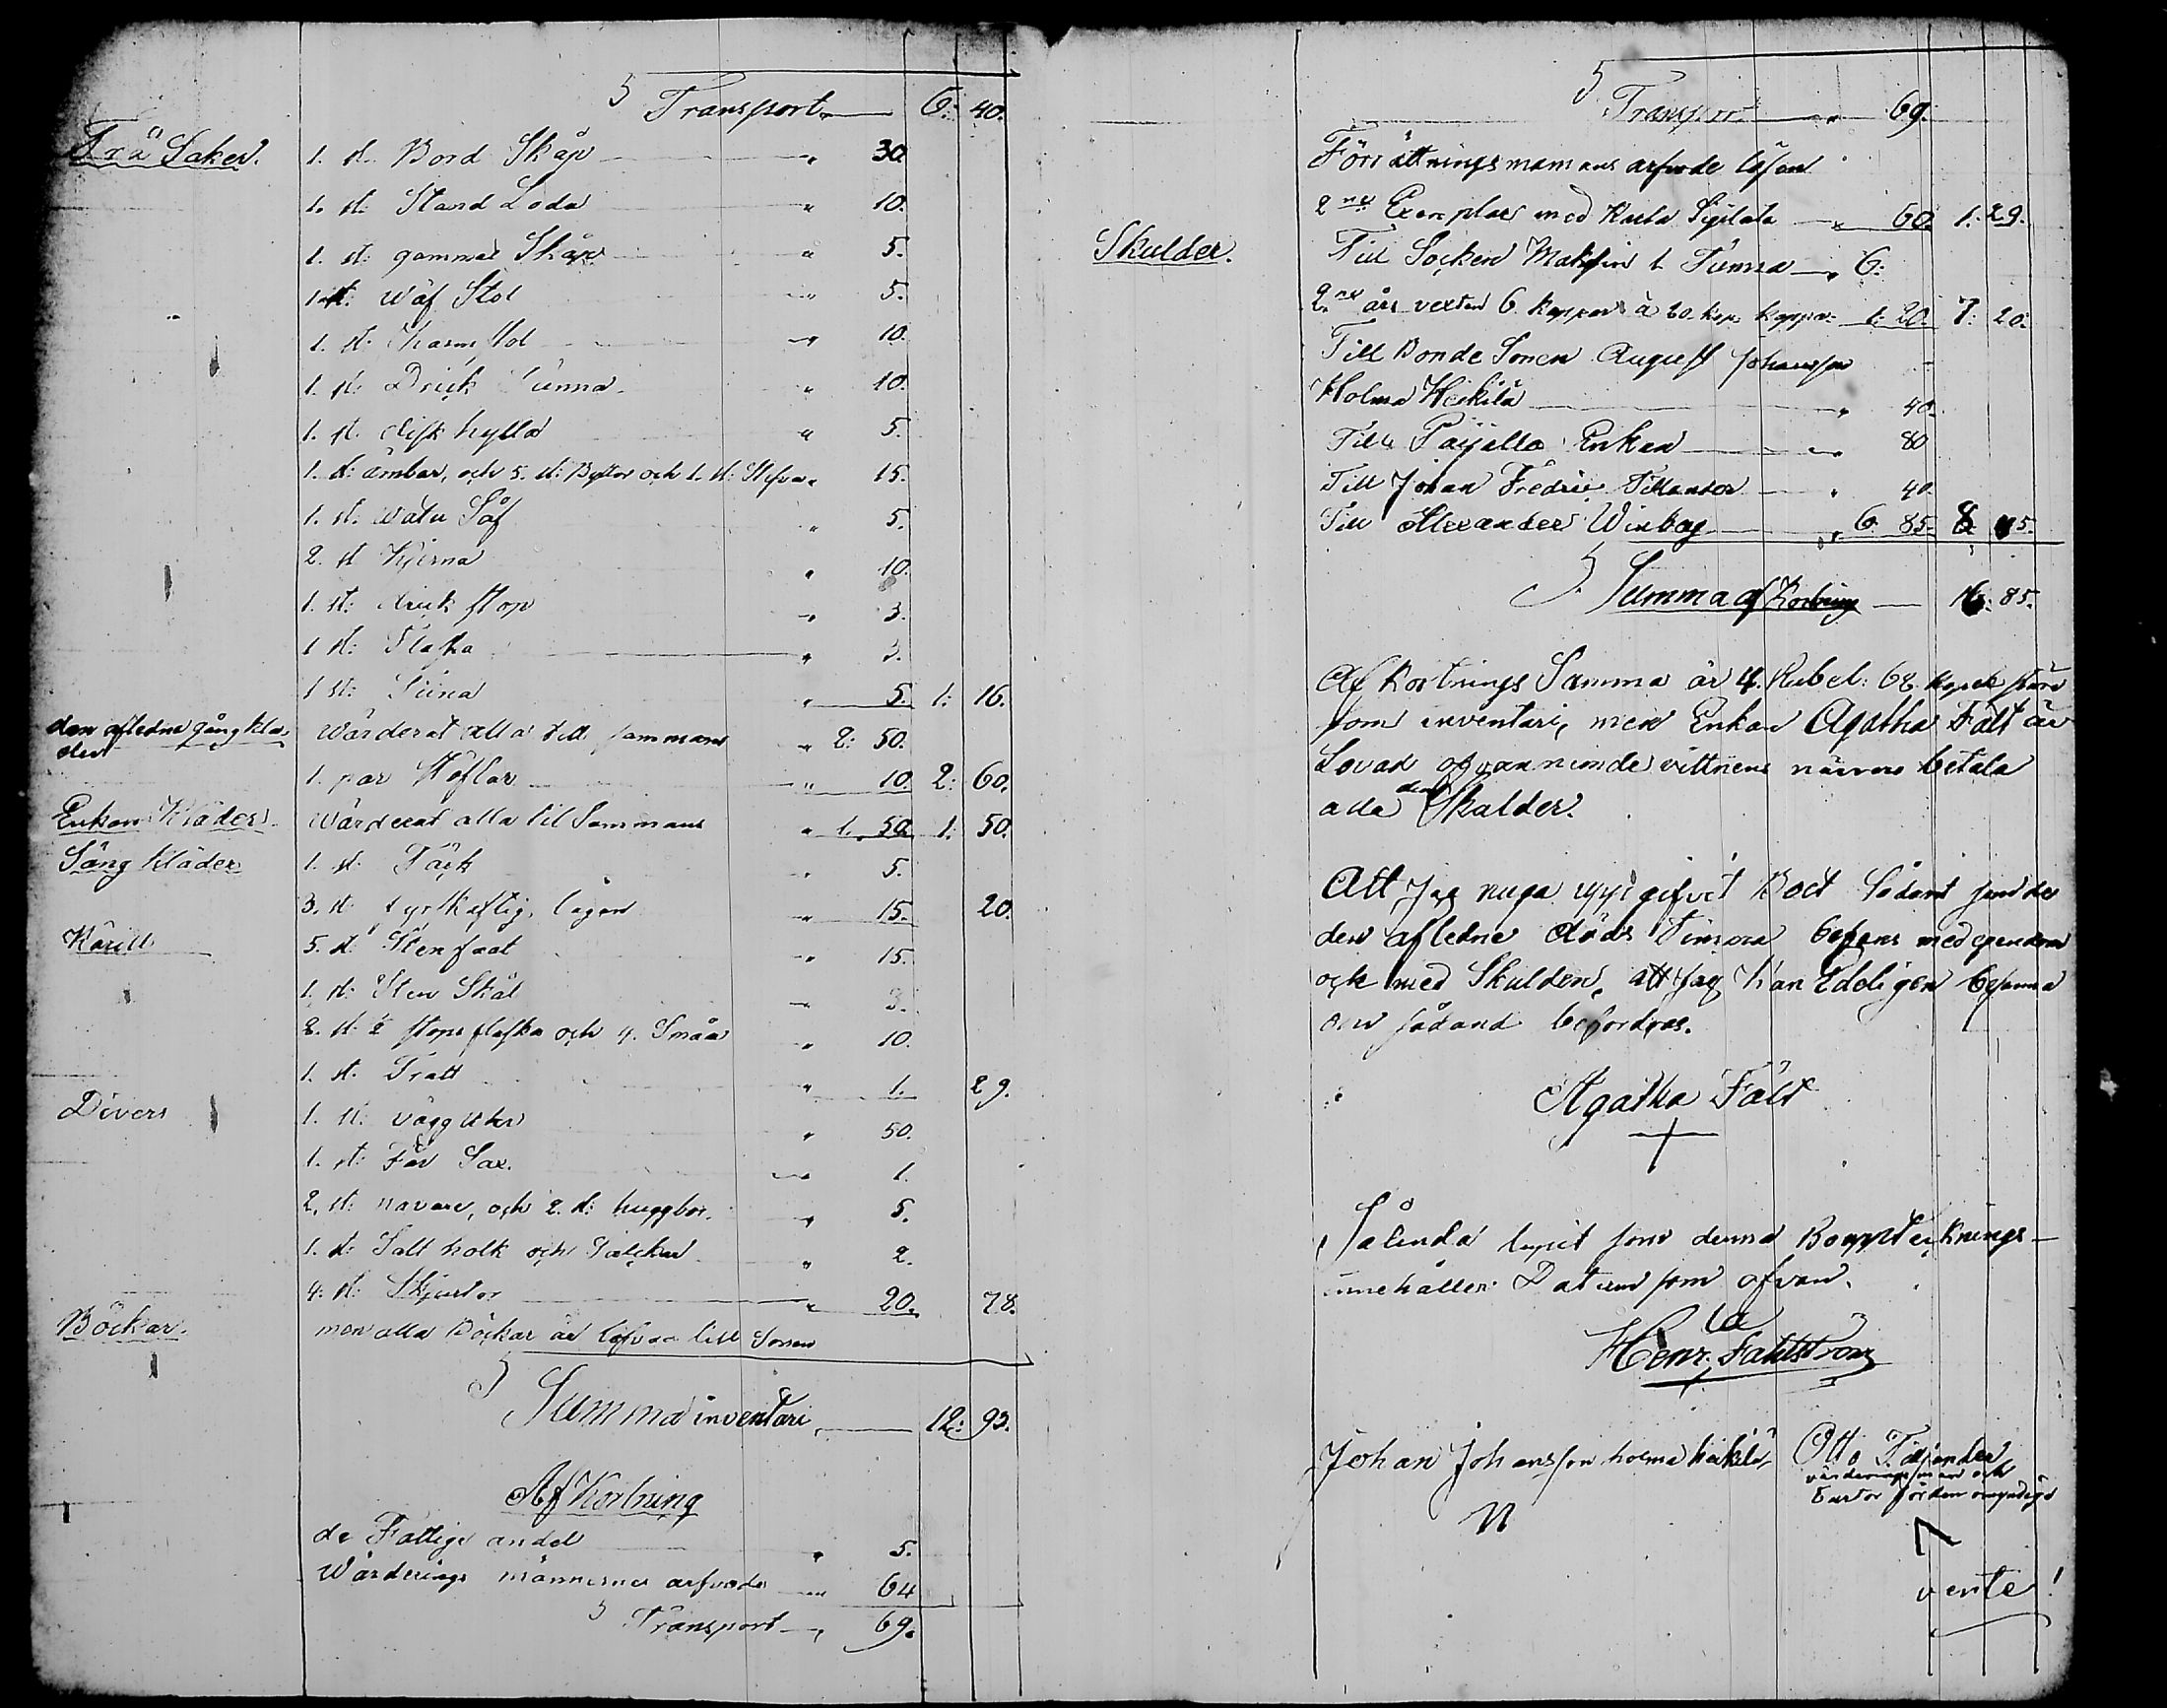 Transport 6: 40.
Trä Saker. 1. st. Bord Skåp " 30.
1. st. Stand Loda " 10.
1. st: gammal Skåp " 5.
1. st. wäf Stol " 5.
1. st. Karmstol " 10.
1. st: Drick Tunna " 10.
1. st. disk hylla " 5.
1. st: ämbar, och 5. st: Byttor och 1. st: " 15.
1. st. Så " 5.
2. st Kjerna " 10.
1. st: drick stop " 3.
1 st: Flaska " 3.
1 st: " 5. 1: 16.
den afledne gångklä- Wärderat alla till sammans " 2: 50.
der
1. par Stöflar " 10. 2: 60.
Enkan Kläder Wärderat alla til Sammans " 1. 50 1: 50.
Säng kläder 1. st. Täck " 5.
3. st lagan " 15. 20.
Käril 5. st Stenfaat " 15.
1. st: Sten Skål " 3.
2. st: 2 stops flaska och 4. Småa " 10.
1. st. Tratt " 1. 29.
Divers 1. st: vägg uhr " 50.
1. st: Får Sax. " 1.
2. st: navare, och 2. st: huggbor. " 5.
1. st: Salt holk och " 2.
4: st: " 20. 78.
Böckar. men alla Böckar är till Sonen
Summa inventari 12: 93.
Af Kortning
de Fattige andel " 5.
Wärderings männernes arfvode " 64
Transport " 69.
Transport " 69.
Förrättningsmannans arfvode lösen
2ne Exemplar med Karta Sigilata " 60. 1: 29.
Skulder. Till Socken Maksin 1 Tunna " 6:
2ne års vexten 6. kappar à 20. kop. kappa 1: 20. 7: 20.
Till Bonde Sonen August Johansson
Holma Heikilä " 40.
Till Enkan " 80
Till Johan Fredric " 40.
Till Alexander " 6. 85. 8.
Summa af Kortning 16: 85.
Af Kortnings Summa är 4. Rubel: 68. kopek större
som inventari, men Enkan Agatha Fält är
Lovad ofvannämde vittnens närvaro betala
alla dess Skulder.
Att Jag noga uppgifvit Boet Sådant som det
den afledne döds Timma befans med egendom
och med Skulden, att Jag Kan Edeligen
om sådand befordras.
Agatha Fält
Således som denna Bouppteckning-
innehåller Datum som ofvan.
Henr. Fahlström
Johan Johansson holma heikilä Otto
värderingsman och
för den omyndige
vente!